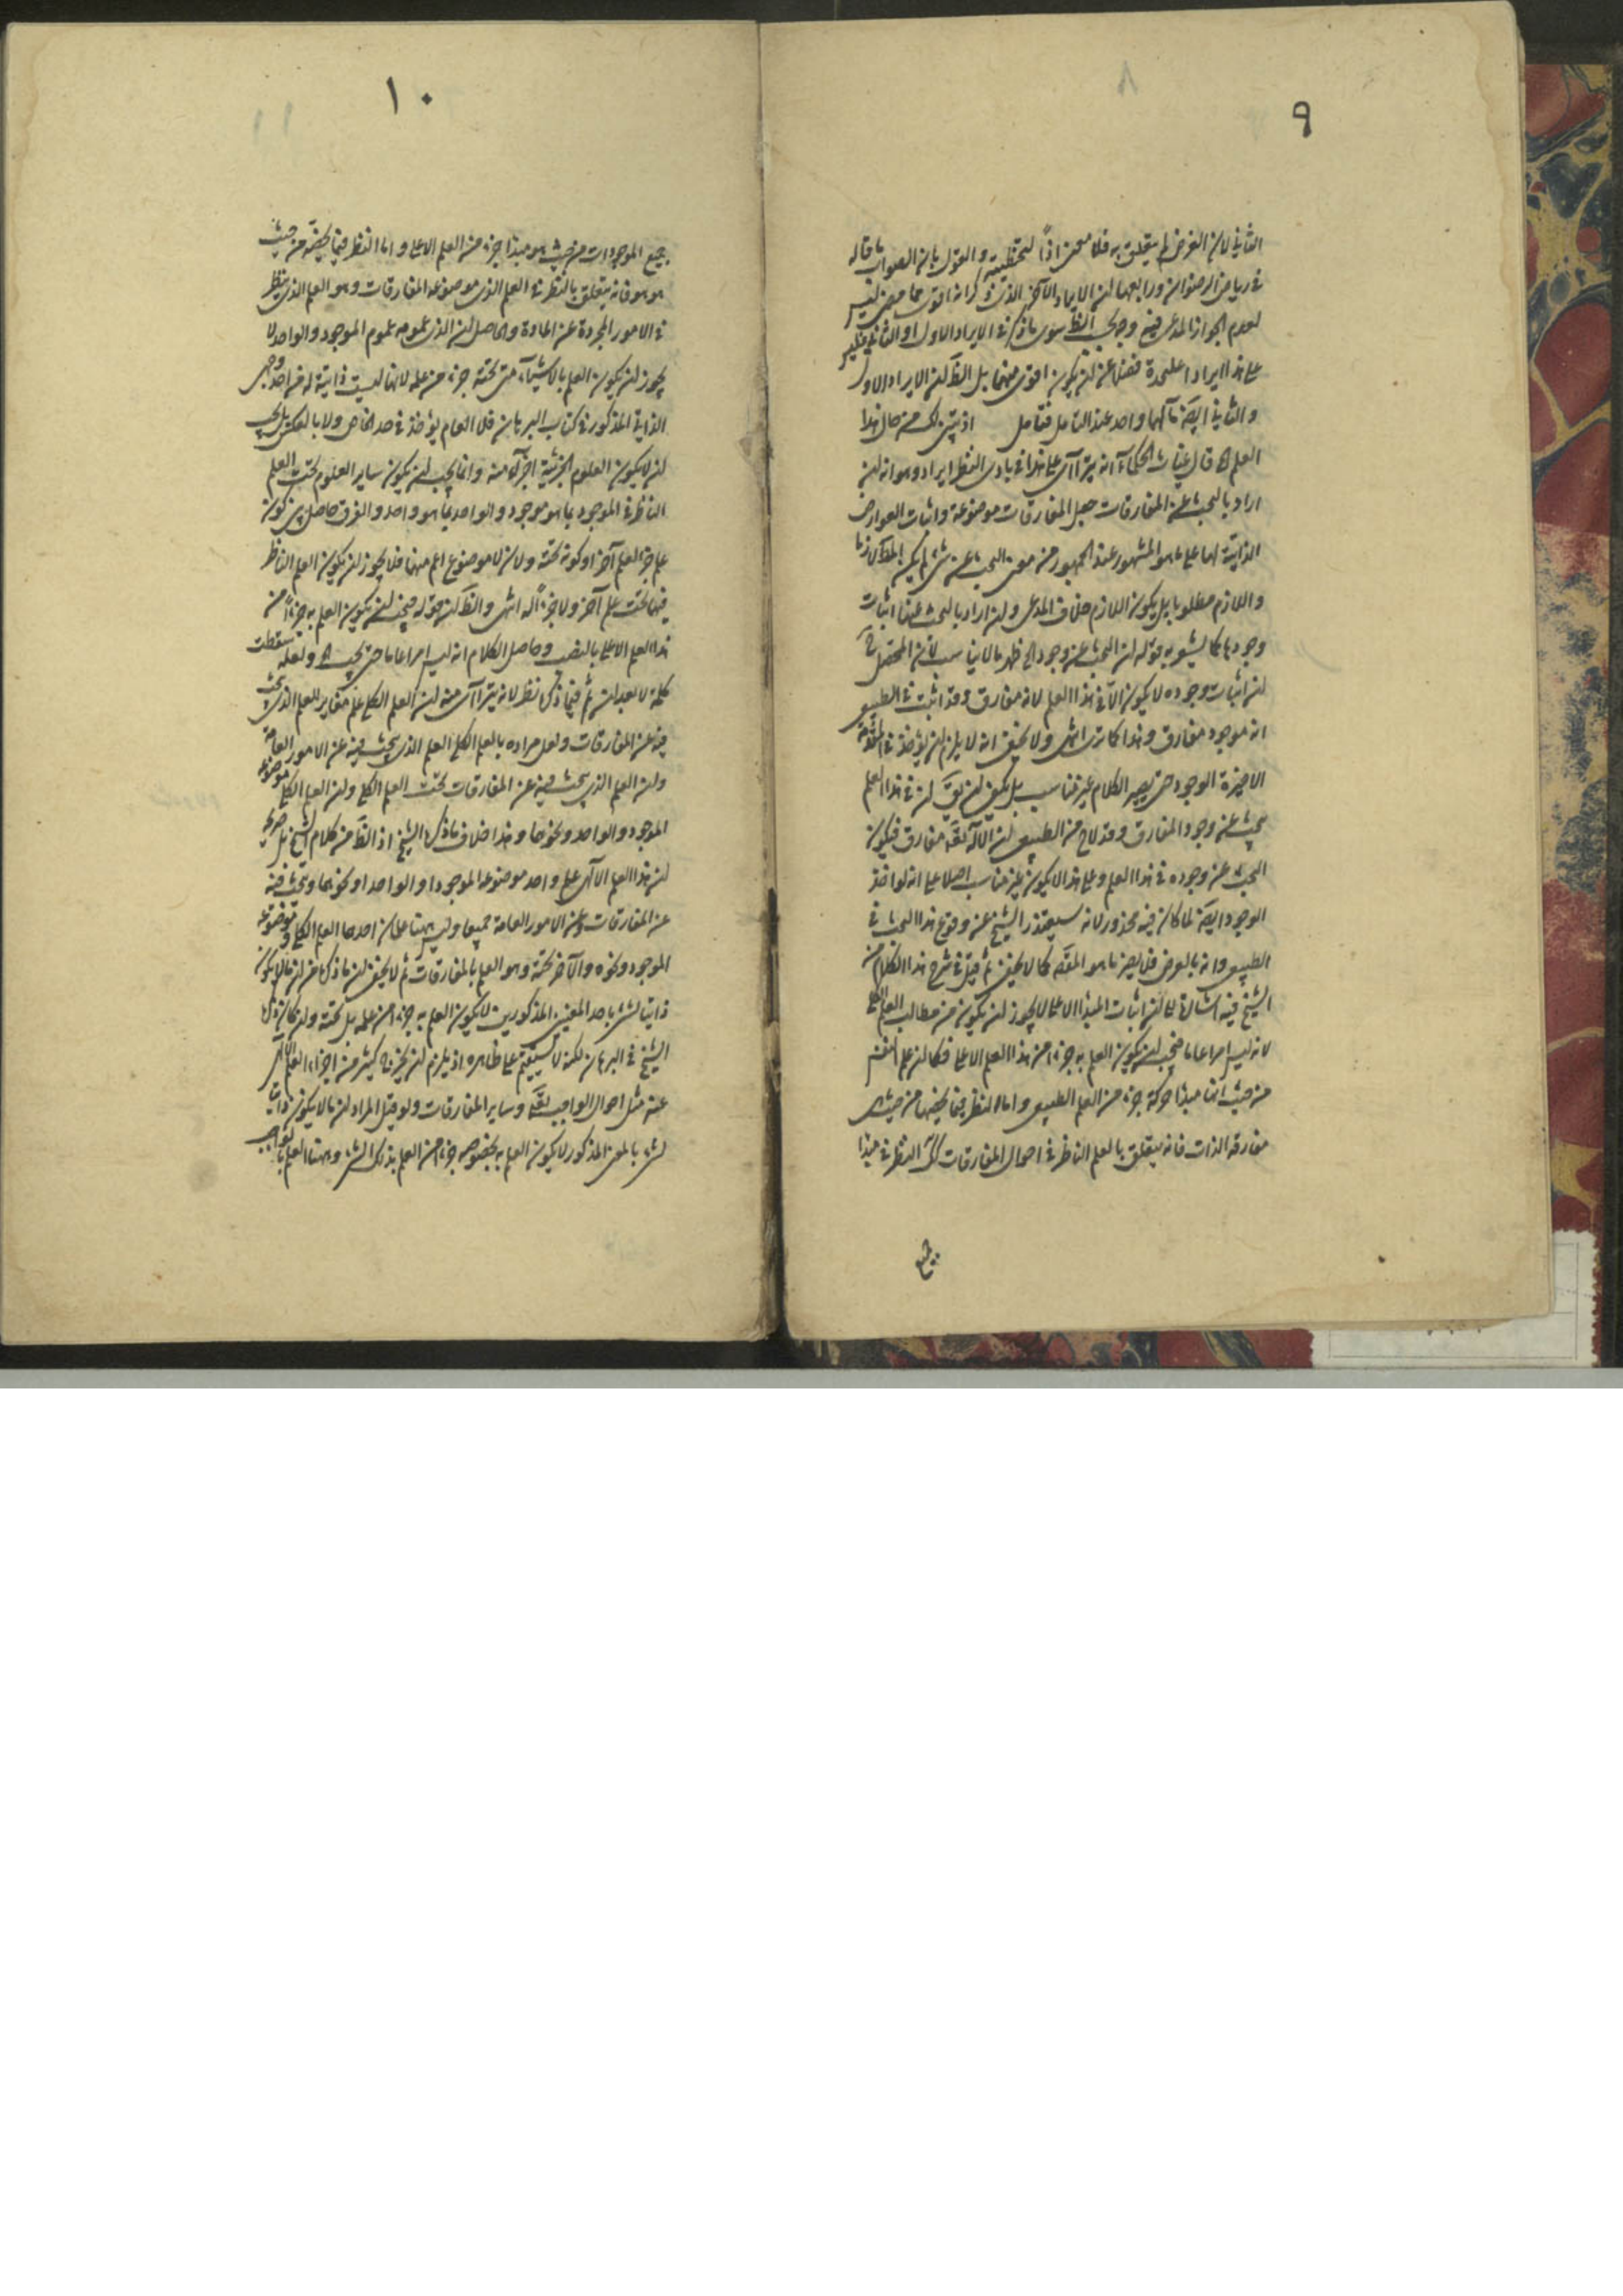 ٩
الثانى لان الغرض لم يتعلق به فلا معنى اذاً لتخطئته والقول بان الصواب ما قاله
فى رياض الرضوان ورابعها ان الايراد الآخر الذى ذكر انه اقوى مما مضى ليس
لعدم الجواز المدعى فيه وجه الظ سوى ما ذكر فى الايراد الاول او الثانى فليس
على هذا ايرادا عليحدة فضلا عن ان يكون اقوى منهما بل الظ ان الايراد الاول
والثانى ايضا مآلهما واحد عند التامل فتامل اذ تبين لك من حال هذا
العلم اه قال غياث الحكماء انه يترآى على هذا فى بادى النظر ايراد وهو انه ان
اراد بالبحث عن المفارقات جعل المفارقات موضوعة واثبات العوارض
الذاتية لها على ما هو المشهور عند الجمهور من معنى البحث عن شى لم يكن
واللازم مطلوبا بل يكون اللازم خلاف المدعى وان اراد بالبحث عنها اثبات
وجودها كما يشعر به قوله ان البحث عن وجوده اظهر ما لا يناسب لان المحتمل
ان اثبات وجوده لا يكون الا فى هذا العلم لانه مفارق وقد اثبت فى الطبيعى
انه موجود مفارق وهذا كما ترى انتهى ولا يخفى انه لا يلزم ان يؤخذ فى المقدمة
الاخيرة الوجود حتى يصير الكلام غير مناسب بل يكفى ان يق ان فى هذا العلم
يبحث عن وجود المفارق وقد لاح من الطبيعى ان الاله تعه مفارق فيكون
البحث عن وجوده فى هذا العلم وعلى هذا لا يكون غير مناسب اصلا على انه لو اخذ
الوجود ايضا لما كان فيه محذور لانه سيعتذر الشيخ عن وقوع هذا البحث فى
الطبيعى وانه بالعرض فلا يضر ما هو المقص كما لا يخفى ثم قيل فى شرح هذا الكلام من
الشيخ فيه اشارة الى ان اثبات المبدأ الاعلى لا يجوز ان يكون من مطالب العلم الكلى
لانه ليس امرا عاما فيجب ان يكون العلم به جزءا من هذا العلم الاعلى فكما ان علم النفس
من حيث انها مبدأ حركة جزء من العلم الطبيعى واما النظر فيما يخصها من حيث هى
مفارقة الذات فانه يتعلق بالعلم الناظر فى احوال المفارقات كك النظر فى مبدأ
جميع
١٠
جميع الموجودات من حيث هو مبدأ جزء من العلم الاعلى واما النظر فيما يخصه من حيث
هو هو فانه يتعلق بالنظر فى العلم الذى موضوعه المفارقات وهو العلم الذى ينظر
فى الامور المجردة عن المادة والحاصل ان الذى عمومه عموم الموجود والواحد لا
يجوز ان يكون العلم بالاشياء التى تحته جزء من علمه لانها ليست ذاتية له من احد وجهى
الذاتى المذكور فى كتاب البرهان فلا العام يؤخذ فى حد الخاص ولا بالعكس بل يجب
ان لا يكون العلوم الجزئية اجزاء منه وانما يجب ان يكون ساير العلوم تحت العلم
الناظر فى الموجود بما هو موجود والواحد بما هو واحد والفرق حاصل بين كون
علم جزء لعلم آخر او كونه تحته ولانه لا موضوع اعم منهما فلا يجوز ان يكون العلم الناظر
فيهما تحت علم آخر ولا جزءاً له انتهى والظ ان قوله فيجب ان يكون العلم به جزءاً من
هذا العلم الاعلى بالنصب وحاصل الكلام انه ليس امرا عاما حتى يجب اه ولعله سقطت
كلمة لا بعد ان ثم فيما ذكره نظر لانه يترآى منه ان العلم الكلى علم مغاير للعلم الذى يبحث
فيه عن المفارقات ولعل مراده بالعلم الكلى العلم الذى يبحث فيه عن الامور العامة
وان العلم الذى يبحث فيه عن المفارقات تحت العلم الكلى وان العلم الكلى موضوعه
الموجود والواحد ونحوهما وهذا خلاف ما ذكره الشيخ اذ الظ من كلام الشيخ بل صريحه
ان هذا العلم الالهى علم واحد موضوعه الموجود او الواحد او نحوهما ويبحث فيه
عن المفارقات وعن الامور العامة جميعا وليس ههنا علمان احدهما العلم الكلى وموضوعه
الموجود ونحوه والآخر تحته وهو العلم بالمفارقات ثم لا يخفى ان ما ذكره من ان ما لا يكون
ذاتيا لشى باحد المعنيين المذكورين لا يكون العلم به جزءا من علمه بل تحته وان كان ذكره
الشيخ فى البرهان لكنه لا يستقيم على ظاهره اذ يلزم ان يخرج كثير من اجزاء العلم الالهى
عنه مثل احوال الواجب تعه وساير المفارقات ولو قيل المراد ان ما لا يكون ذاتيا
لشى بالمعنى المذكور لا يكون العلم به بخصوصه جزءا من العلم بذلك الشى وههنا العلم بالواجب